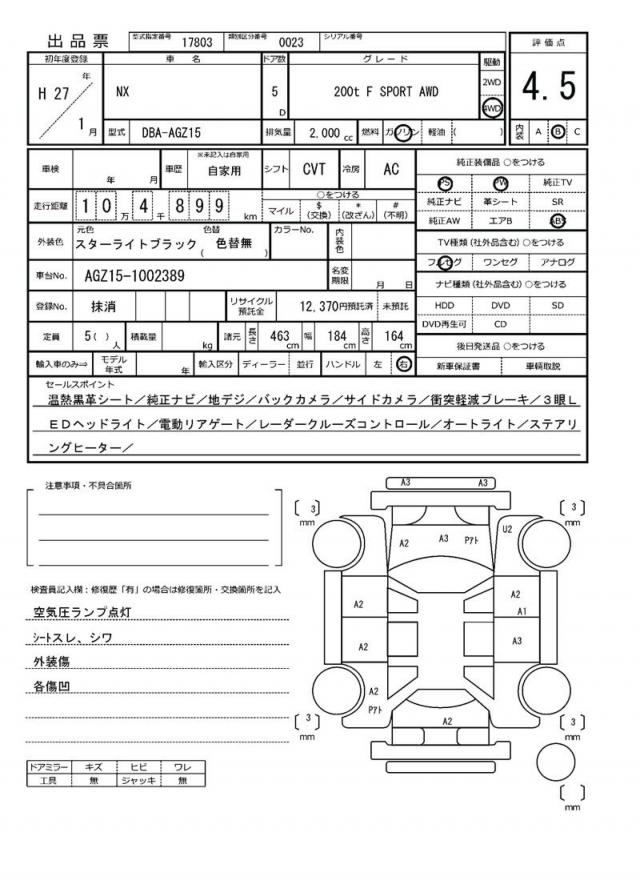 出品票 型式指定番号 17803 類別区分番号 0023 シリアル番号
初年度登録 車名 ドア数 グレード 駆動 評価点
H 27 年 1 月 NX 5 D 200t F SPORT AWD 2WD 4WD 4.5
型式 DBA-AGZ15 排気量 2,000 cc 燃料 ガソリン 軽油 ( ) 内装 A B C
車検 年 月 車歴 ※未記入は自家用 自家用 シフト CVT 冷房 AC
走行距離 10万4千899 km ○をつける
マイル $(交換) *(改ざん) #(不明)
外装色 元色 スターライトブラック 色替 ( 色替無 ) カラーNo. 内装色
車台No. AGZ15-1002389 名変期限 月 日
登録No. 抹消 リサイクル預託金 12,370円預託済 未預託
定員 5( )人 積載量 kg 諸元 長さ 463cm 幅 184cm 高さ 164cm
輸入車のみ⇒ モデル年式 年 輸入区分 ディーラー 並行 ハンドル 左 右
純正装備品 ○をつける
PS PW 純正TV
純正ナビ 革シート SR
純正AW エアB ABS
TV種類(社外品含む)○をつける
フルセグ ワンセグ アナログ
ナビ種類(社外品含む)○をつける
HDD DVD SD
DVD再生可 CD
後日発送品 ○をつける
新車保証書 車輌取説
セールスポイント
温熱黒革シート/純正ナビ/地デジ/バックカメラ/サイドカメラ/衝突軽減ブレーキ/3眼L
EDヘッドライト/電動リアゲート/レーダークルーズコントロール/オートライト/ステアリ
ングヒーター/
注意事項・不具合箇所
検査員記入欄:修復歴「有」の場合は修復箇所・交換箇所を記入
空気圧ランプ点灯
シートスレ、シワ
外装傷
各傷凹
ドアミラー キズ ヒビ ワレ
工具 無 ジャッキ 無
A3 A3
( 3 ) mm ( 3 ) mm
A2 A3 Pアト U2
A2 A2
A1
A2 A3
A2
Pアト
A2
( 3 ) mm ( 3 ) mm
( ) mm